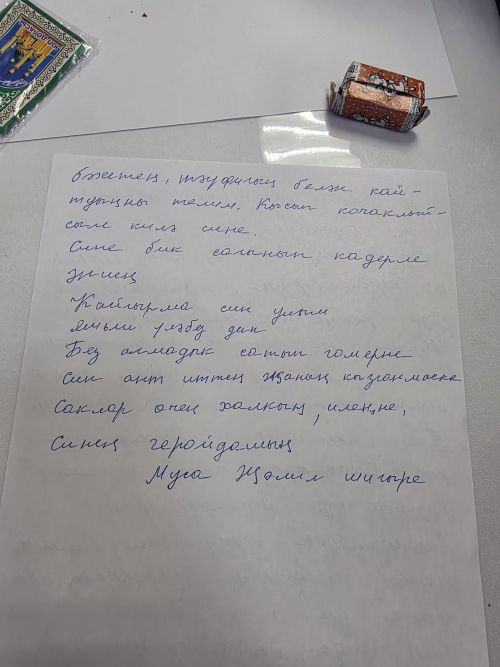 бәхетең, тәуфигың белән кай-
туыңны телим. Кысып кочаклый-
сым килә сине.
Сине бик сагынып кадерле
әниең
Кайгырма син улым
яшьли үләбез дип
Без алмадык сатып гомерне
Син ант иттең Җаның кызганмаска
Саклар өчен халкың, илеңне,
Синең геройдашың
Муса Җәлил шигыре